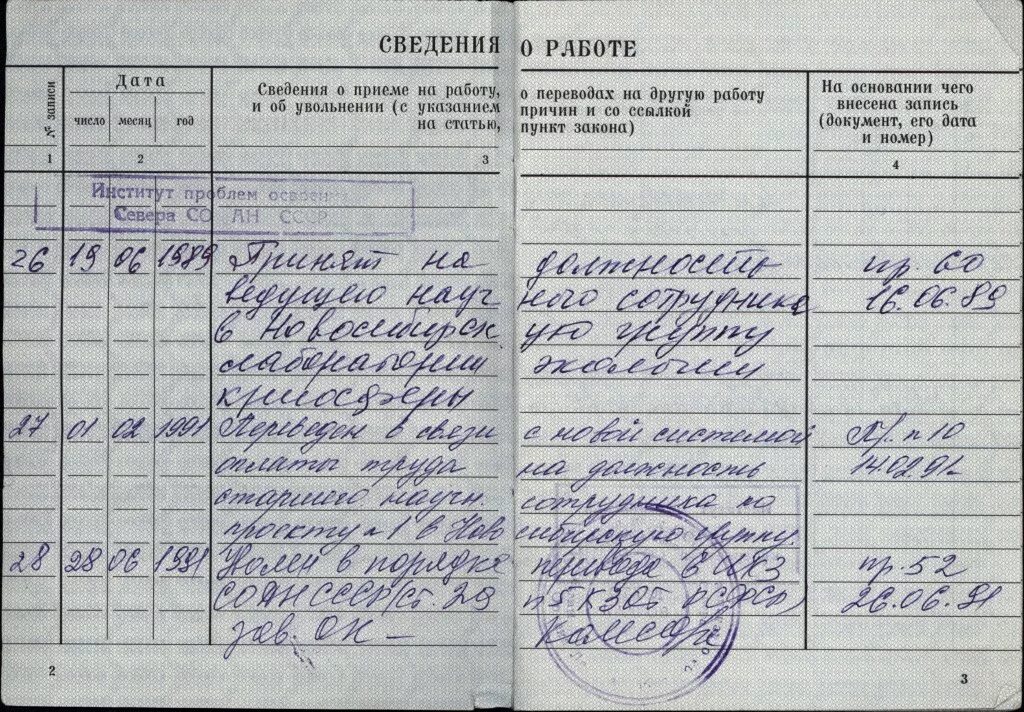 СВЕДЕНИЯ О РАБОТЕ
№ записи
Дата
число месяц год
Сведения о приеме на работу, о переводах на другую работу
и об увольнении (с указанием причин и со ссылкой
на статью, пункт закона)
На основании чего
внесена запись
(документ, его дата
и номер)
1 2 3 4
Институт проблем освоения
Севера СО АН СССР
26 19 06 1989 Принят на должность пр. 60
ведущего научного сотрудника 16.06.89
в Новосибирскую группу
лаборатории экологии
криосферы
27 01 02 1991 Переведен в связи с новой системой Пр. п 10
оплаты труда на должность 14.02.91
старшего научн. сотрудника по
проекту № 1 в Новосибирскую группу.
28 28 06 1991 Уволен в порядке перевода в ИХЗ пр. 52
СОАН СССР (ст. 29 п5 КЗОТ РСФСР) 26.06.91
зав. ОК —
2 3